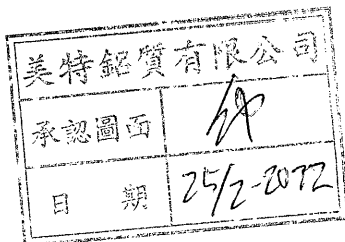 美特鋁質有限公司
承認圖面
日期 25/2-2022